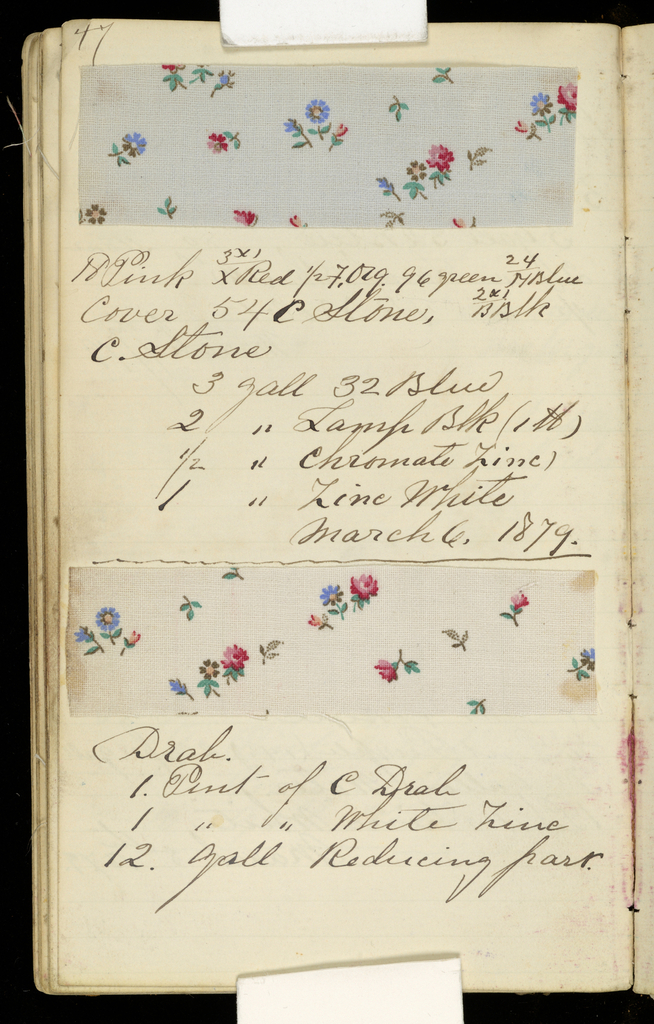 47
Pink 3x1 X Red 1/27, Org. 96 green 24 Blue
Cover 54 C Stone, 2x1 B Blk
C. Stone
3 gall 32 Blue
2 " Lamp Blk (1 ℔)
1/2 " Chromate Zinc)
1 " Zinc White
March 6, 1879.
Drab.
1. Pint of C Drab
1 " " White Zinc
12. gall Reducing